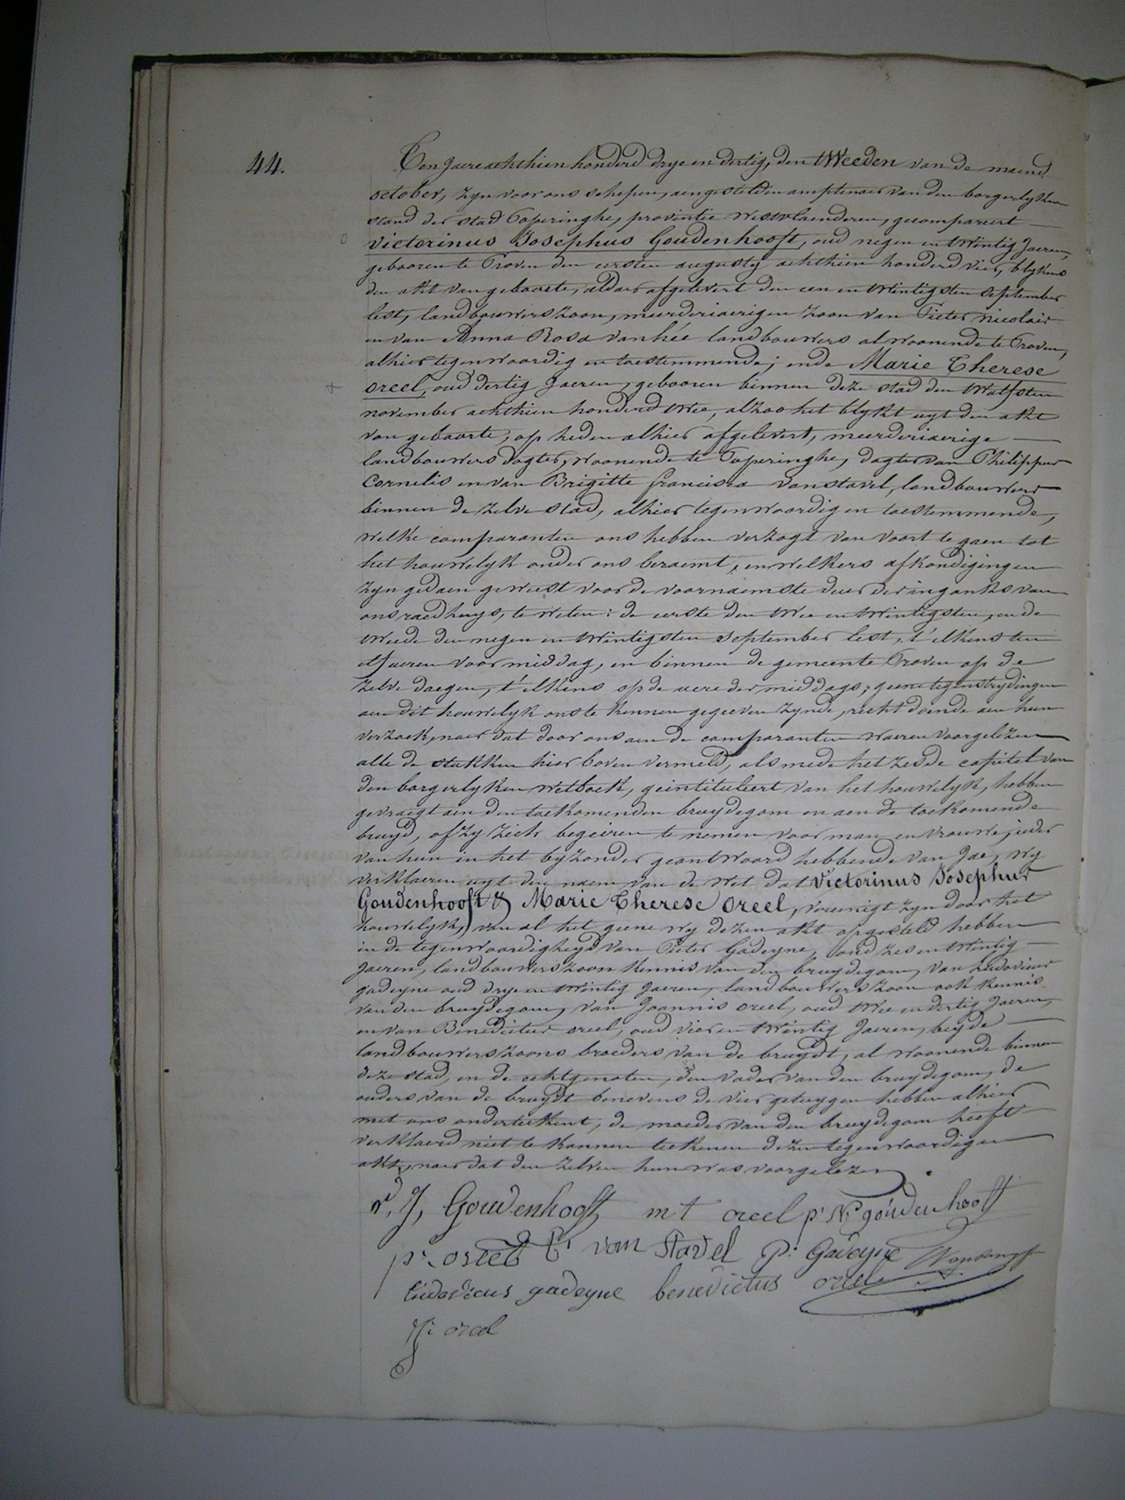 44.
Ten jaere achthien honderd drye en dertig, den tweeden van de maend
october, zyn voor ons schepen, aengestelden amptenaer van den borgerlyken
stand der stad Poperinghe, provintie westvlaenderen, gecompareert
Victorinus Josephus Goudenhooft, oud negen en twintig jaeren,
gebooren te Proven den eersten augusty achthien honderd vier, blykens
den akt van geboorte, aldaer afgelevert den een en twintigsten september
lest, landbouwers zoon, meerderjaerigen zoon van Pieter Nicolais
en van Anna Rosa Vanhée landbouwers al woonende te Proven,
alhier tegenwoordig en toestemmende; ende Marie Therese
Oreel, oud dertig jaeren, gebooren binnen deze stad den twalfsten
november achthien honderd twee, alzoo het blykt uyt den akt
van geboorte, op heden alhier afgelevert, meerderjaerige
landbouwers dogter, woonende te Poperinghe, dogter van Philippus
Cornelis en van Brigitte francisca vanstavel, landbouwers
binnen de zelve stad, alhier tegenwoordig en toestemmende,
welke comparanten ons hebben verzogt van voort te gaen tot
het houwelyk onder ons beraemt, en welkers afkondigingen
zyn gedaen geweest voor de voornaemste deur der ingank van
ons raedhuys, te weten: de eerste den twee en twintigsten, en de
tweede den negen en twintigsten september lest, t'elkens ten
elf ueren voor middag, en binnen de gemeente Proven op de
zelve daegen, t'elkens op de uere der middags; geene tegenstrydingen
aen dit houwelyk ons te kennen gegeeven zynde, recht doende aen hun
verzoek, naer dat door ons aen de comparanten waeren voorgelezen
alle de stukken hier boven vermeld, als mede het zesde capitel van
den borgerlyken wetboek, geintituleert van het houwelyk, hebben
gevraegt aen den toekomenden bruydegom en aen de toekomende
bruyd, of zy zich begeiren te nemen voor man en vrouwe, ieder
van hun in het byzonder geantwoord hebbende van Jae, wy
verklaeren uyt den naem van de wet dat Victorinus Josephus
Goudenhooft & Marie Therese Oreel, vereenigt zyn door het
houwelyk, van al het geene wy dezen akt opgesteld hebben
in de tegenwoordigheyd van Pieter Gadeyne, oud zes en twintig
jaeren, landbouwers zoon kennis van den bruydegom, van Ludovicus
gadeyne oud drye en twintig jaeren, landbouwers zoon ook kennis
van den bruydegom, van Joannis oreel, oud twee en dertig jaeren,
en van Benedictus oreel, oud vier en twintig jaeren, beyde
landbouwers zoons broeders van de bruydt, al woonende binnen
deze stad, en de echtgenoten, den vader van den bruydegom, de
ouders van de bruydt benevens de vier getuygen hebben alhier
met ons onderteekent, de moeder van den bruydegom heeft
verklaerd niet te konnen teekenen dezen tegenwoordigen
akt, naer dat den zelven hun was voorgelezen
v. J, Goudenhooft m t oreel p. N goudenhooft
p. oreel B. van Stavel P. Gadeyne
Ludovicus gadeyne benedictus oreel
J. oreel